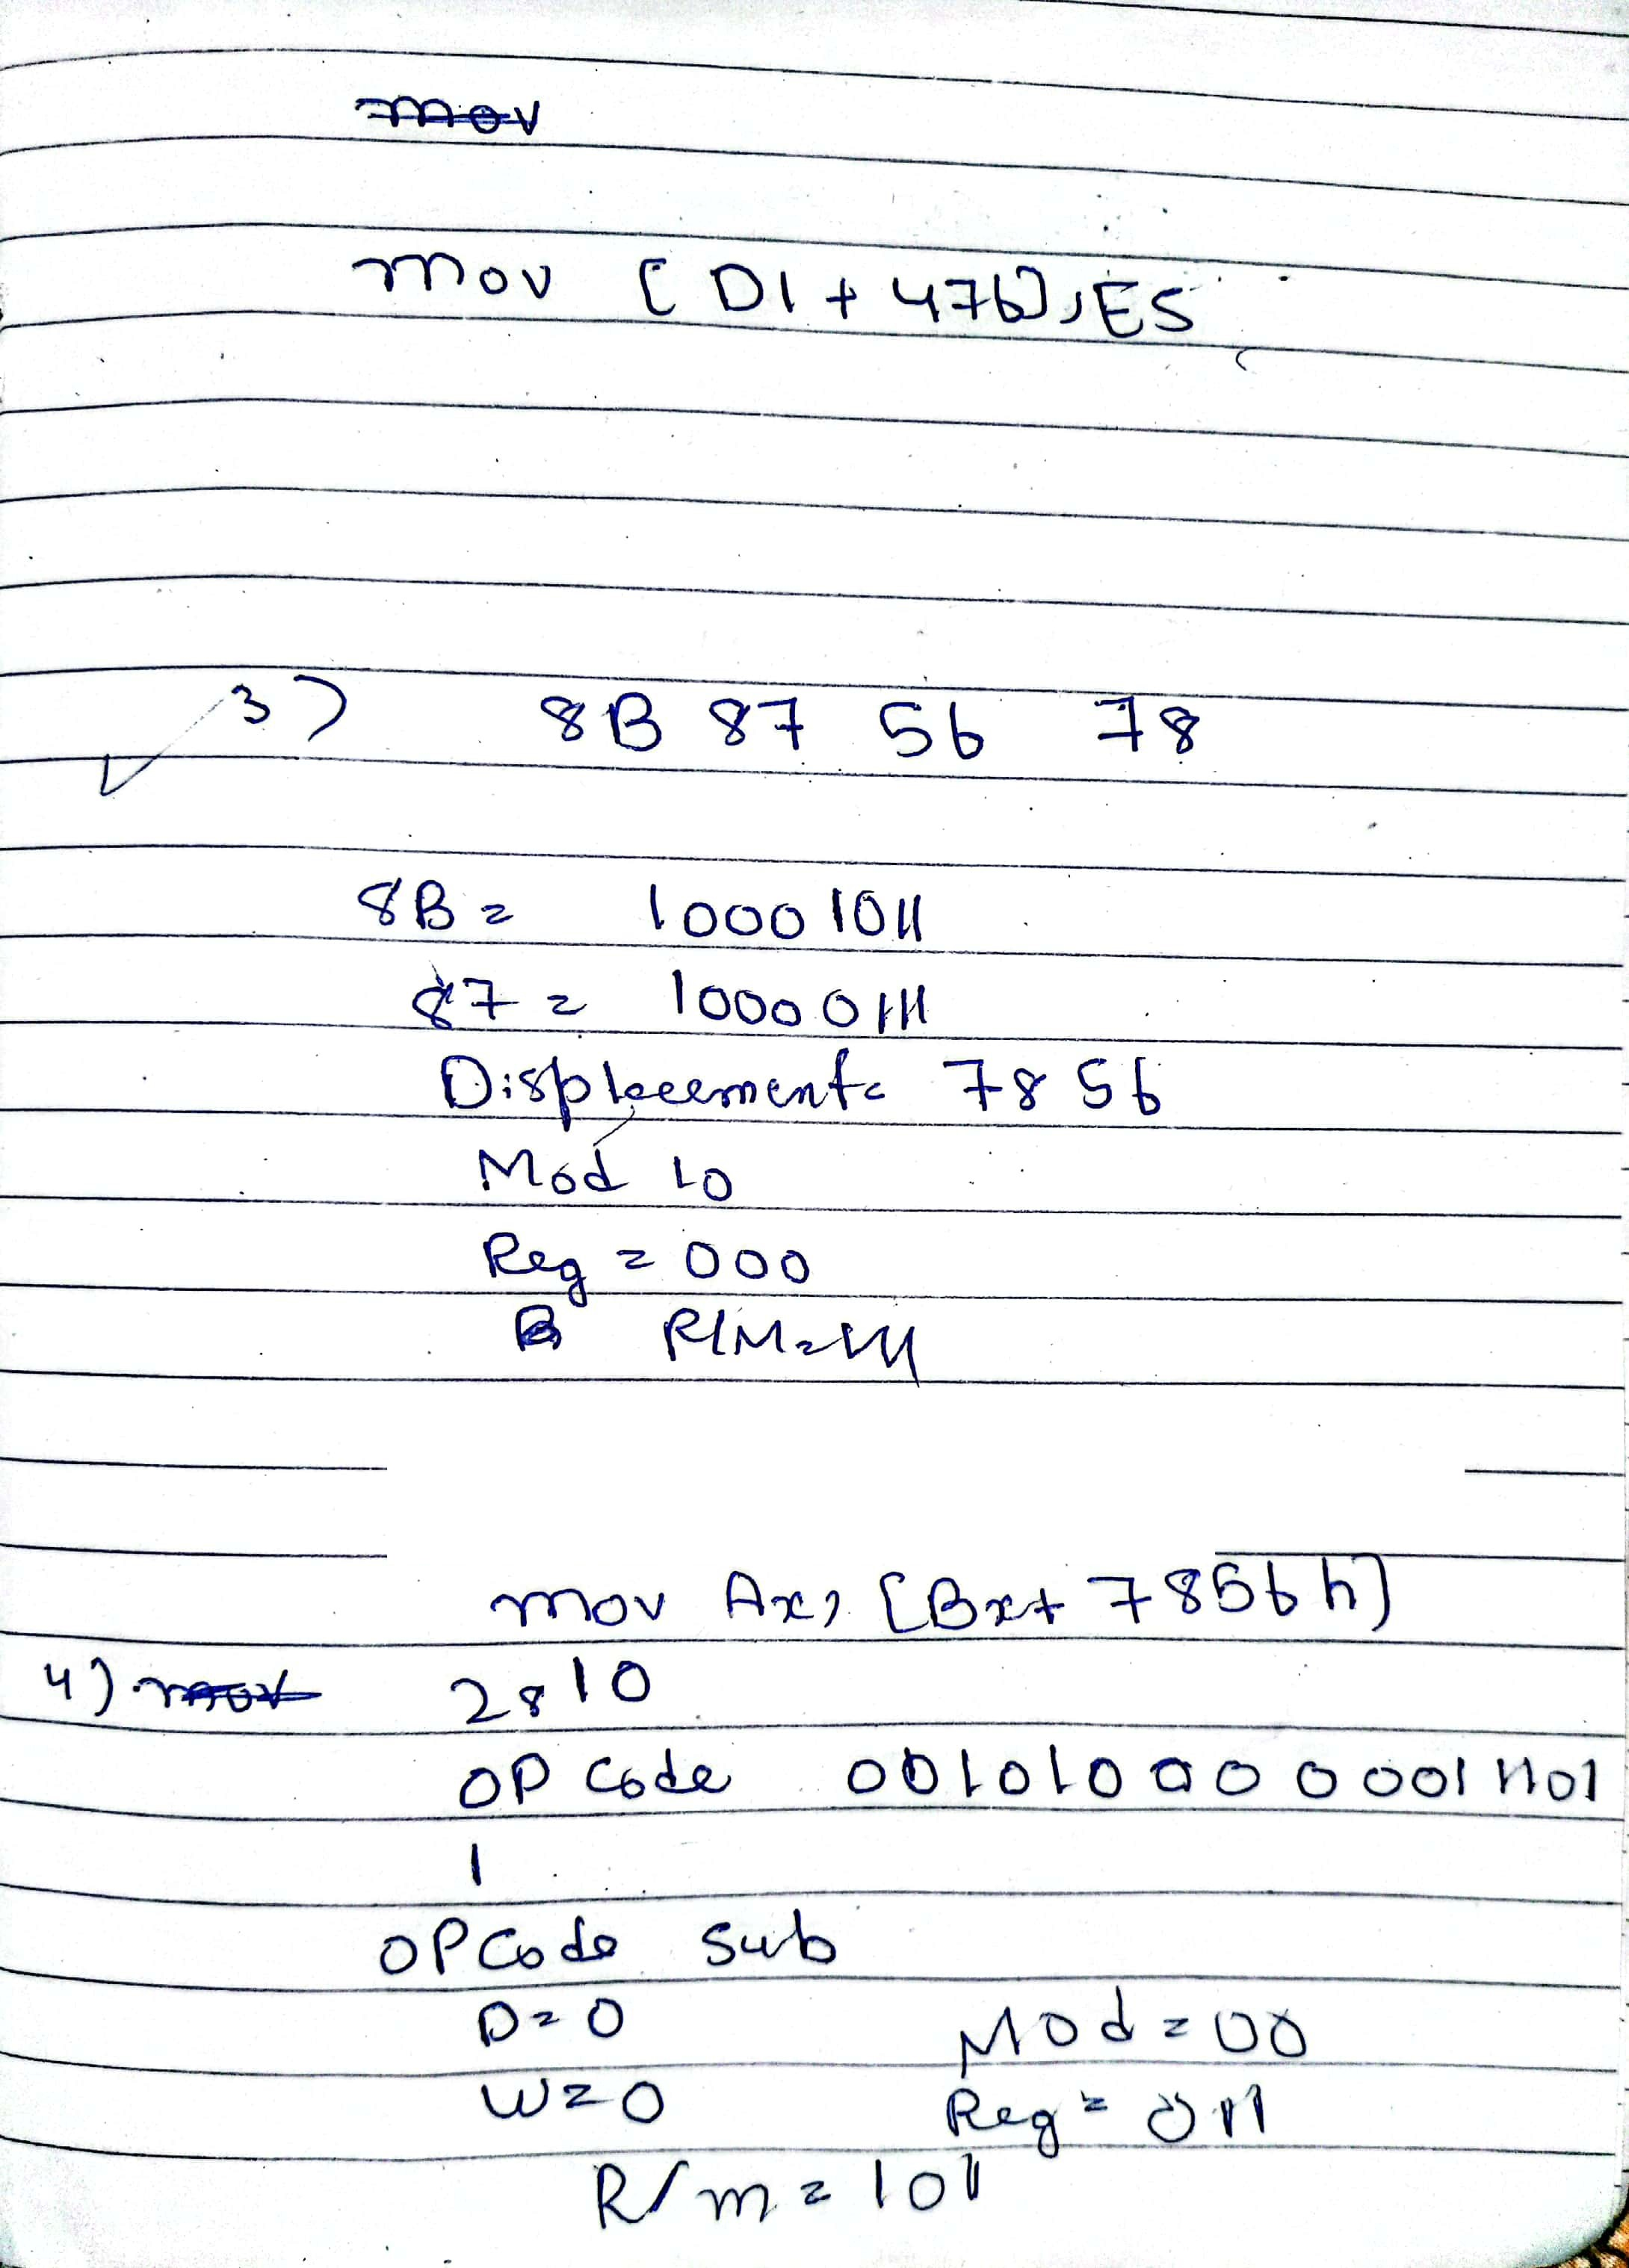 mov
mov [DI + 476], ES
3) 8B 87 56 78
8B = 10001011
87 = 10000111
Displacement = 7856
Mod 10
Reg = 000
R/M = 111
mov Ax, [Bx + 7856h]
4) mov 2810
OP Code 00101000 00011101
1
OPCode Sub
D = 0 Mod = 00
W = 0 Reg = 011
R/m = 101